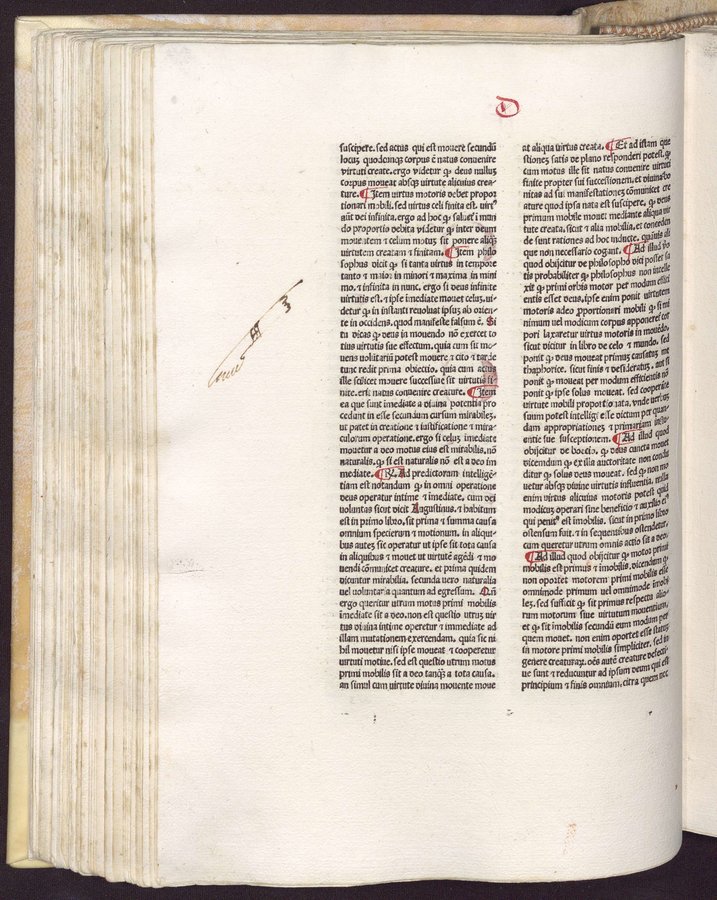 D
suscipere. sed actus qui est mouere secundū
locū quodcunqꝫ corpus ē natus conuenire
virtuti create. ergo videtur ꝙ deus nullum
corpus moueat absqꝫ virtute alicuius crea-
ture. ¶ Item virtus motoris debet propor
tionari mobili. sed virtus celi finita est. virtꝰ
aūt dei infinita. ergo ad hoc ꝙ saluet̄ i mun
do proportio debita videtur ꝙ inter deum
mouentem ⁊ celum motuꝫ sit ponere aliquā
virtutem creatam ⁊ finitam. ¶ Item philo
sophus dicit ꝙ si tanta virtus in tempore
tanto ⁊ maior in minori ⁊ maxima in mini
mo. ⁊ infinita in nunc. ergo si deus infinite
virtutis est. ⁊ ipse imediate mouet celuꝫ. vi-
detur ꝙ in instanti reuoluat ipsuꝫ ab orien-
te in occidens. quod manifeste falsum ē. Si
tu dicas ꝙ deus in mouendo nō exercet to
tius virtutis sue effectum. quia cum sit mo-
uens volūtariū potest mouere ⁊ cito ⁊ tarde
tunc redit prima obiectio. quia cum actus
ille scilicet mouere successiue sit virtutis fi-
nite. erit natus conuenire creature. ¶ Item
ea que sunt imediate a diuina potentia pro
cedunt in esse secundum cursum mirabileꝫ.
ut patet in creatione ⁊ iustificatione ⁊ mira-
culorum operatione. ergo si celuꝫ imediate
mouetur a deo motus eius est mirabilis. nō
naturalis. ꝙ si est naturalis nō est a deo im
mediate. ¶ R̄. Ad predictorum intelligē-
tiam est notandum ꝙ in omni operatione
deus operatur intime ⁊ imediate. cum dei
voluntas sicut dicit Augustinus. ⁊ habitum
est in primo libro. sit prima ⁊ summa causa
omnium specierum ⁊ motionum. in aliqui-
bus auteꝫ sic operatur ut ipse sit tota causa
in aliquibus ⁊ mouet ut virtutē agēdi ⁊ mo
uendi cōmunicet creature. et prima quidem
dicuntur mirabilia. secunda vero naturalia
uel voluntaria quantum ad egressum. Qn̄
ergo queritur utrum motus primi mobilis
imediate sit a deo. non est questio utruꝫ vir
tus diuina intime operetur ⁊ immediate ad
illam mutationem exercendam. quia sic ni
hil mouetur nisi ipse moueat ⁊ cooperetur
uirtuti motiue. sed est questio utrum motus
primi mobilis sit a deo tanꝙ a tota causa.
an simul cum virtute diuina mouente moue
at aliqua virtus creata. ¶ Et ad istam que
stionem satis de plano responderi potest. ꝙ
cum motus ille sit natus conuenire virtuti
finite propter sui successionem. et diuina bo
nitas ad sui manifestationeꝫ cōmunicet cre
ature quod ipsa nata est suscipere. ꝙ deus
primum mobile mouet mediante aliqua vir
tute creata. sicut ⁊ alia mobilia. et conceden
de sunt rationes ad hoc inducte. quāuis ali
que non necessario cogant. ¶ Ad illud vō
quod obijcitur de philosopho dici posset sa
tis probabiliter ꝙ philosophus non intelle
xit ꝙ primi orbis motor per modum effici
entis esset deus. ipse enim ponit virtutem
motoris adeo ꝓportionari mobili ꝙ si mi
nimum uel modicum corpus apponeret̄ cor
pori laxaretur virtus motoris in mouēdo.
sicut dicitur in libro de celo ⁊ mundo. sed
ponit ꝙ deus moueat primuꝫ causatuꝫ me
thaphorice. sicut finis ⁊ desideratuꝫ. aut si
ponit ꝙ moueat per modum efficientis nō
ponit ꝙ ipse solus moueat. sed cooperāte
virtute mobili proportionata. vnde verbuꝫ
suum potest intelligi esse dictum per quan-
dam appropriationeꝫ ⁊ primariam influ-
entie sue susceptionem. ¶ Ad illud quod
obijcitur de boetio. ꝙ deus cuncta mouet
dicendum ꝙ ex illa auctoritate non conclu
ditur ꝙ solus deus moueat. sed ꝙ non mo
uetur absqꝫ diuine virtutis influentia. nulla
enim virtus alicuius motoris potest quid
modicuꝫ operari sine beneficio ⁊ auxilio eiꝰ
qui penitꝰ est imobilis. sicut in primo libro
ostensum fuit. ⁊ in sequentibus ostendetur.
cum queretur utrum omnis actio sit a deo.
¶ Ad illud quod obijcitur ꝙ motor primi
mobilis est primus ⁊ imobilis. dicendum ꝙ
non oportet motorem primi mobilis esse
omnimode primum uel omnimode imobi
leꝫ. sed sufficit ꝙ sit primus respectu alio-
rum motorum siue virtutum mouentium.
et ꝙ sit imobilis secundū eum modum per
quem mouet. non enim oportet esse statum
in motore primi mobilis simpliciter. sed in
genere creaturaꝝ. oēs autē creature defecti-
ue sunt ⁊ reducuntur ad ipsum deum qui est
principium ⁊ finis omnium. citra quem nec